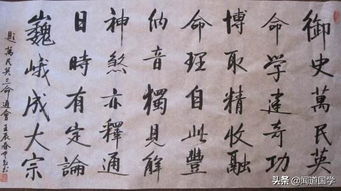 御史萬民英
命學建奇功
博取精收融
命理自此豐
納音獨見解
神煞亦釋通
日時有定論
巍峨成大宗
題萬民英三命通會 壬辰春
闻道国学